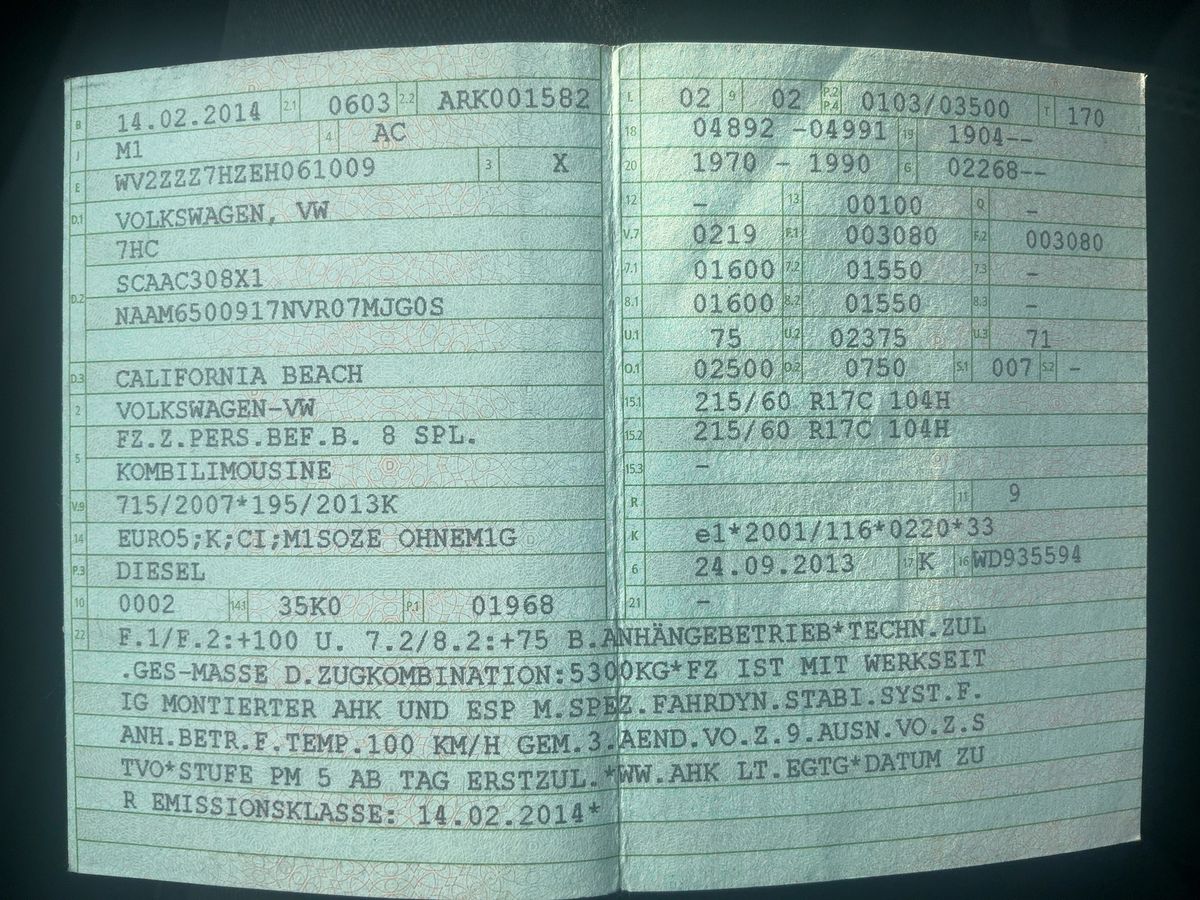 B 14.02.2014 2.1 0603 2.2 ARK001582
J M1 4 AC
E WV2ZZZ7HZEH061009 3 X
D.1 VOLKSWAGEN, VW
7HC
D.2 SCAAC308X1
NAAM6500917NVR07MJG0S
D.3 CALIFORNIA BEACH
2 VOLKSWAGEN-VW
5 FZ.Z.PERS.BEF.B. 8 SPL.
KOMBILIMOUSINE
V.9 715/2007*195/2013K
14 EURO5;K;CI;M1SOZE OHNEM1G
P.3 DIESEL
10 0002 14.1 35K0 P.1 01968
L 02 9 02 P.2 P.4 0103/03500 T 170
18 04892 -04991 19 1904--
20 1970 - 1990 G 02268--
12 - 13 00100 Q -
V.7 0219 F.1 003080 F.2 003080
7.1 01600 7.2 01550 7.3 -
8.1 01600 8.2 01550 8.3 -
U.1 75 U.2 02375 U.3 71
O.1 02500 O.2 0750 S.1 007 S.2 -
15.1 215/60 R17C 104H
15.2 215/60 R17C 104H
15.3 -
R 11 9
K e1*2001/116*0220*33
6 24.09.2013 17 K 16 WD935594
21 -
22 F.1/F.2:+100 U. 7.2/8.2:+75 B.ANHÄNGEBETRIEB*TECHN.ZUL
.GES-MASSE D.ZUGKOMBINATION:5300KG*FZ IST MIT WERKSEIT
IG MONTIERTER AHK UND ESP M.SPEZ.FAHRDYN.STABI.SYST.F.
ANH.BETR.F.TEMP.100 KM/H GEM.3.AEND.VO.Z.9.AUSN.VO.Z.S
TVO*STUFE PM 5 AB TAG ERSTZUL.*WW.AHK LT.EGTG*DATUM ZU
R EMISSIONSKLASSE: 14.02.2014*